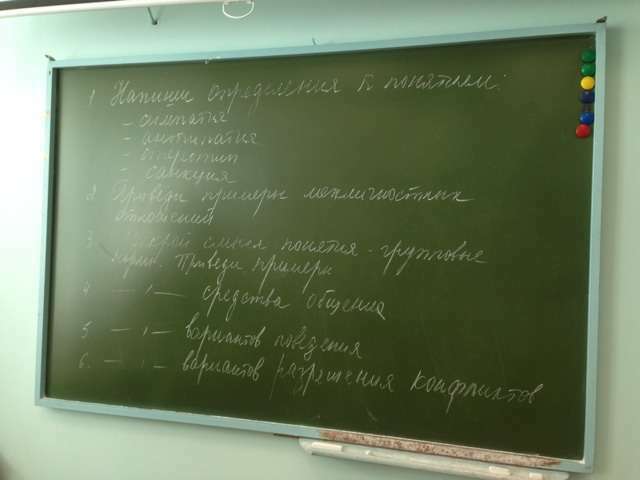 1. Напиши определения к понятием:
- симпатия
- антипатия
- стереотип
- санкция
2. Приведи примеры межличностных
отношений
3. Раскрой смысл понятия - групповые
нормы. Приведи примеры
4. — , — средства общения
5 — , — вариантов поведения
6. — , — вариантов разрешения конфликтов